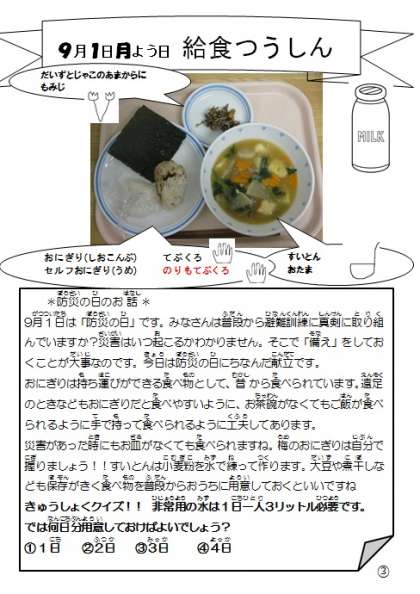 9月1日月よう日 給食つうしん
だいずとじゃこのあまからに
もみじ
MILK
おにぎり(しおこんぶ)
セルフおにぎり(うめ)
てぶくろ
のりもてぶくろ
すいとん
おたま
*防災の日のお話*
9月1日は「防災の日」です。みなさんは普段から避難訓練に真剣に取り組
んでいますか?災害はいつ起こるかわかりません。そこで「備え」をしてお
くことが大事なのです。今日は防災の日にちなんだ献立です。
おにぎりは持ち運びができる食べ物として、昔から食べられています。遠足
のときなどもおにぎりだと食べやすいように、お茶碗がなくてもご飯が食べ
られるように手で持って食べられるように工夫してあります。
災害があった時にもお皿がなくても食べられますね。梅のおにぎりは自分で
握りましょう!!すいとんは小麦粉を水で練って作ります。大豆や煮干しな
ども保存がきく食べ物を普段からおうちに用意しておくといいですね
きゅうしょくクイズ!! 非常用の水は1日一人3リットル必要です。
では何日分用意しておけばよいでしょう?
①1日 ②2日 ③3日 ④4日
③